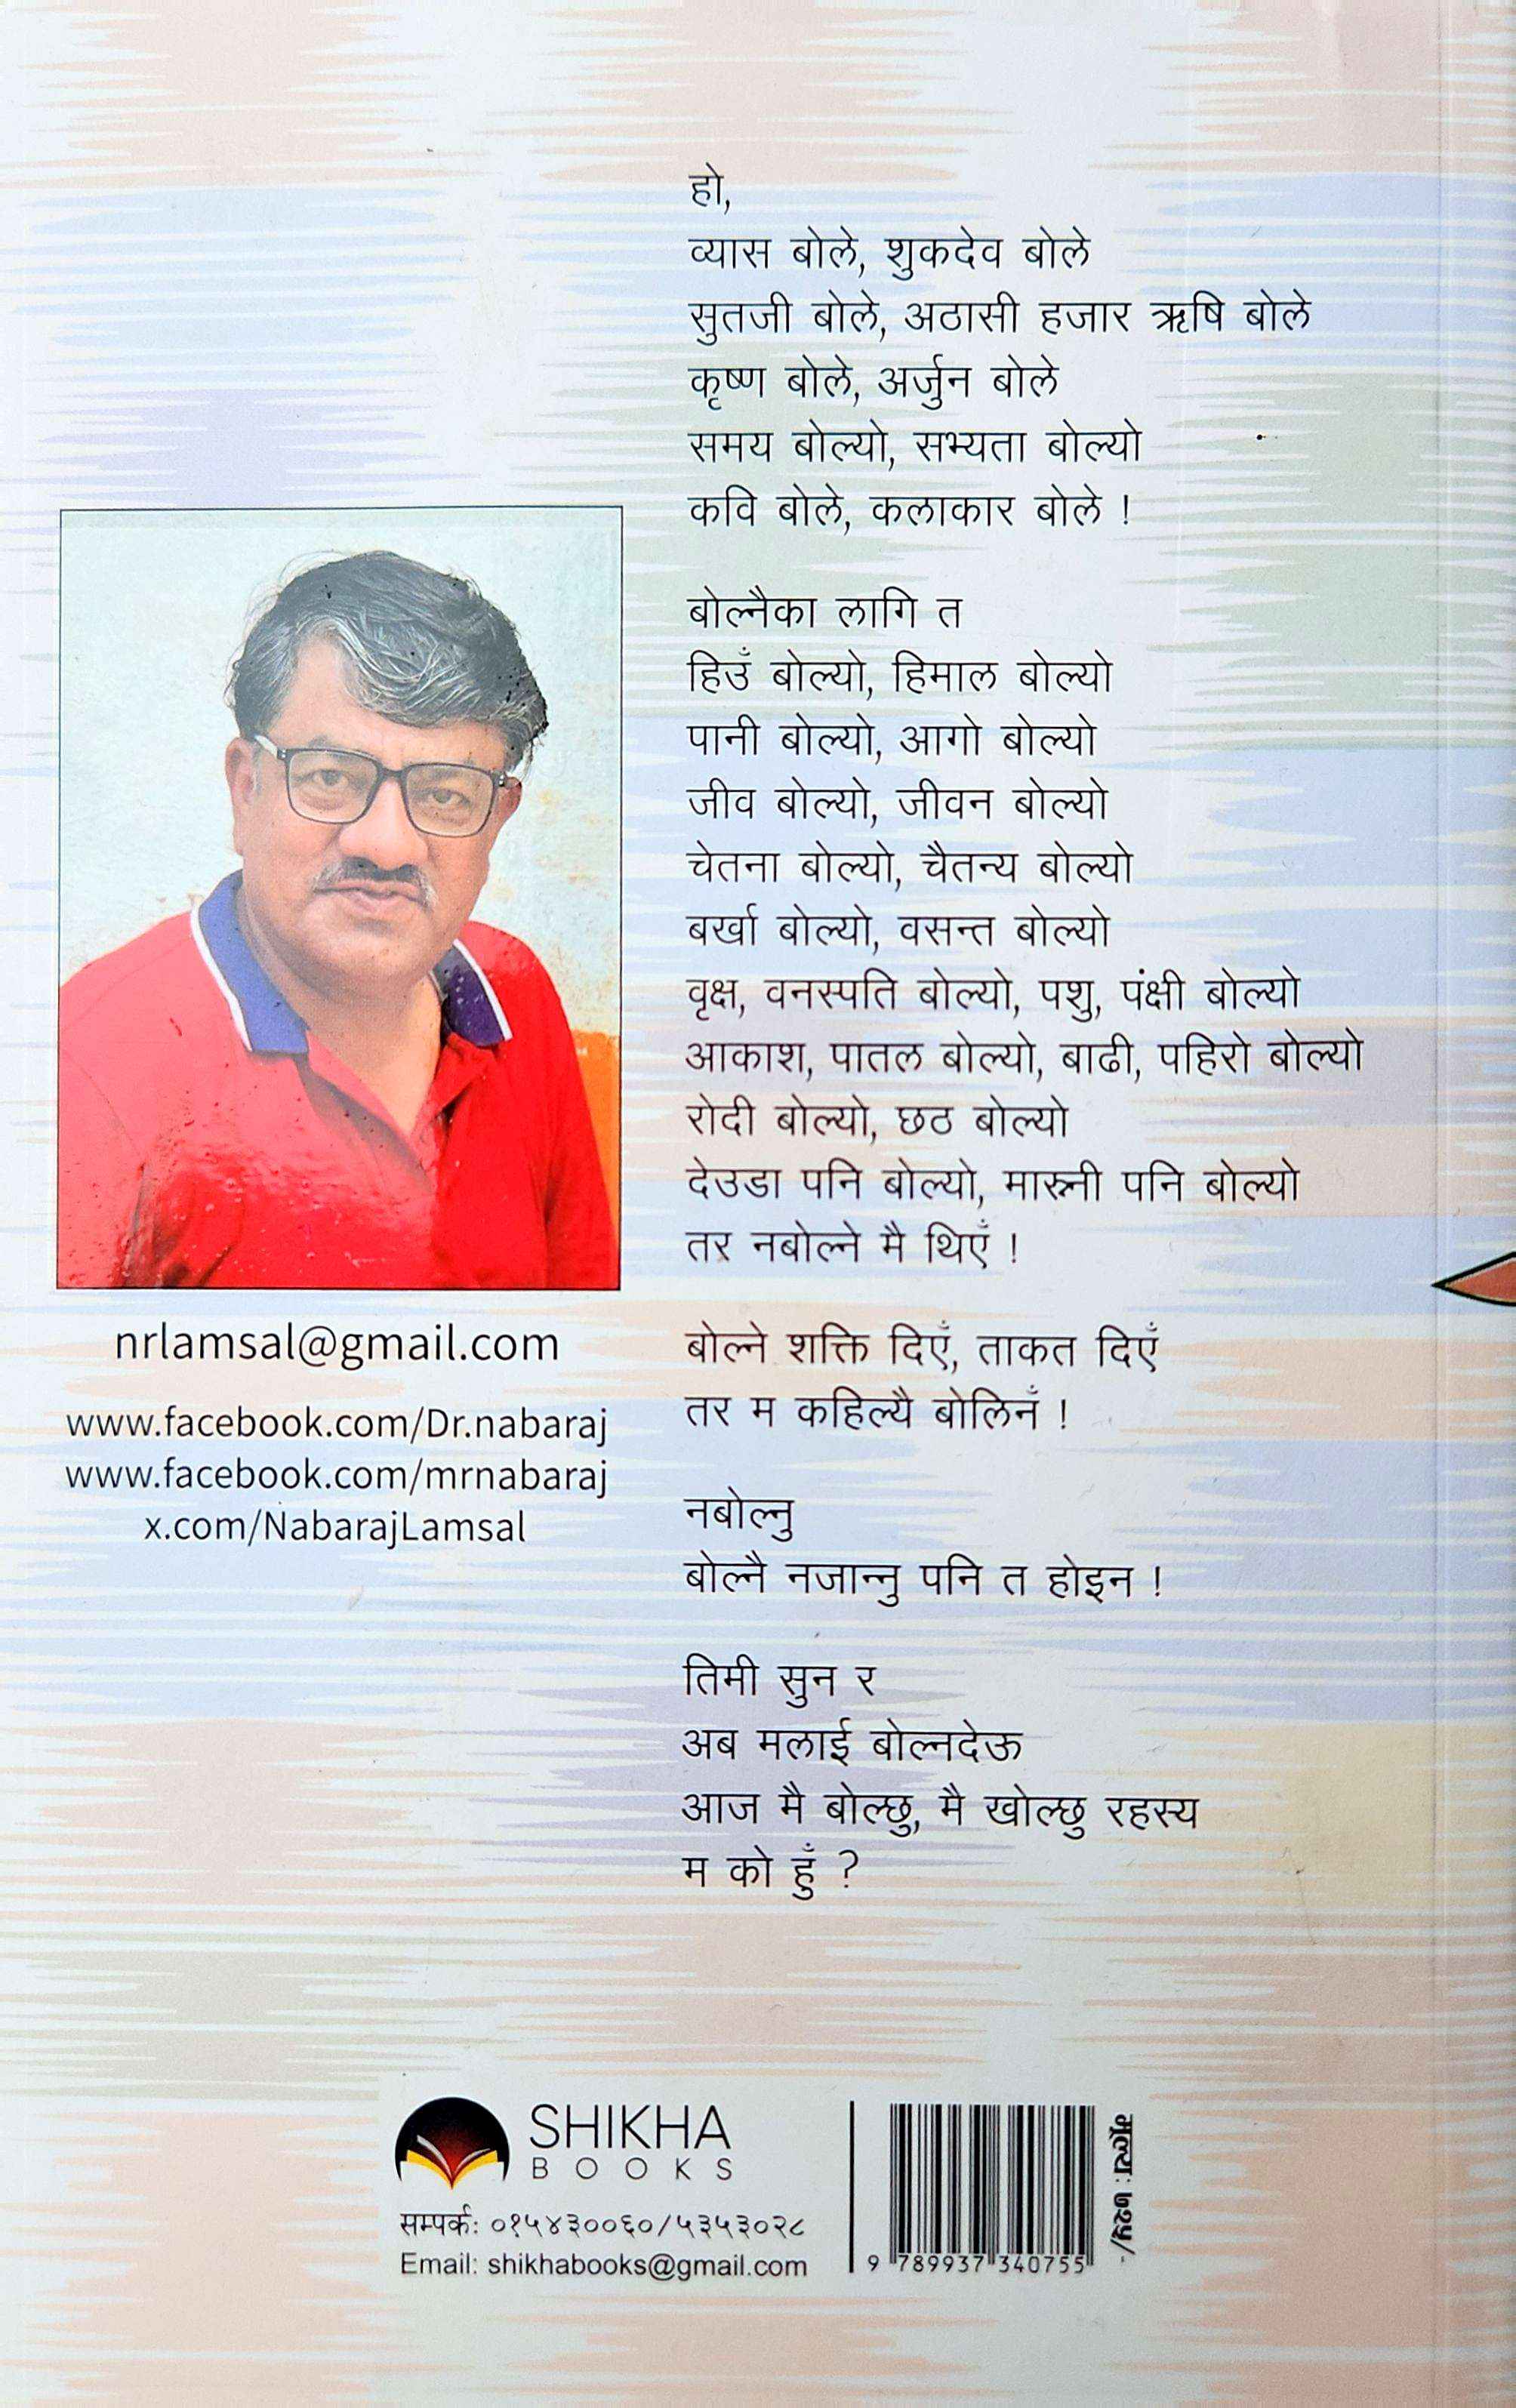 हो,
व्यास बोले, शुकदेव बोले
सुतजी बोले, अठासी हजार ऋषि बोले
कृष्ण बोले, अर्जुन बोले
समय बोल्यो, सभ्यता बोल्यो
कवि बोले, कलाकार बोले !
बोल्नैका लागि त
हिउँ बोल्यो, हिमाल बोल्यो
पानी बोल्यो, आगो बोल्यो
जीव बोल्यो, जीवन बोल्यो
चेतना बोल्यो, चैतन्य बोल्यो
बर्खा बोल्यो, वसन्त बोल्यो
वृक्ष, वनस्पति बोल्यो, पशु, पंक्षी बोल्यो
आकाश, पातल बोल्यो, बाढी, पहिरो बोल्यो
रोदी बोल्यो, छठ बोल्यो
देउडा पनि बोल्यो, मारुनी पनि बोल्यो
तर नबोल्ने मै थिएँ !
बोल्ने शक्ति दिएँ, ताकत दिएँ
तर म कहिल्यै बोलिनँ !
नबोल्नु
बोल्नै नजान्नु पनि त होइन !
तिमी सुन र
अब मलाई बोल्नदेऊ
आज मै बोल्छु, मै खोल्छु रहस्य
म को हुँ ?
nrlamsal@gmail.com
www.facebook.com/Dr.nabaraj
www.facebook.com/mrnabaraj
x.com/NabarajLamsal
SHIKHA
BOOKS
सम्पर्क: ०१५४३००६०/५३५३०२८
Email: shikhabooks@gmail.com
9 789937 340755
मूल्य: ७२५/-